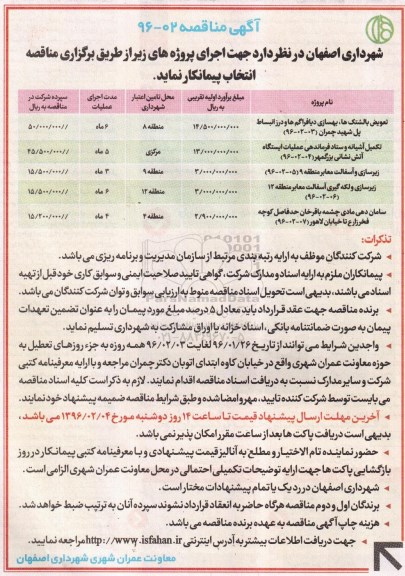 آگهی مناقصه ۰۲-۹۶
شهرداری اصفهان در نظر دارد جهت اجرای پروژه های زیر از طریق برگزاری مناقصه
انتخاب پیمانکار نماید.
نام پروژه | مبلغ برآورد اولیه تقریبی به ریال | محل تامین اعتبار شهرداری | مدت اجرای عملیات | سپرده شرکت در مناقصه به ریال
تعویض بالشتک ها، بهسازی دیافراگم ها و درز انبساط پل شهید چمران (۰۳-۰۲-۹۶) | ۱۴/۵۰۰/۰۰۰/۰۰۰ | منطقه ۸ | ۶ ماه
تکمیل آشیانه و ستاد فرماندهی عملیات ایستگاه آتش نشانی بزرگمهر (۰۴-۰۲-۹۶) | ۱۳/۰۰۰/۰۰۰/۰۰۰ | مرکزی | ۵ ماه
زیرسازی و آسفالت معابر منطقه ۹ (۰۵-۰۲-۹۶) | ۳/۰۰۰/۰۰۰/۰۰۰ | منطقه ۹ | ۳ ماه
زیرسازی و لکه گیری آسفالت معابر منطقه ۱۲ (۰۶-۰۲-۹۶) | ۳/۰۰۰/۰۰۰/۰۰۰ | منطقه ۱۲ | ۶ ماه
سامان دهی مادی چشمه باقرخان حدفاصل کوچه فخرزارع تا خیابان لاهور (۰۷-۰۲-۹۶) | ۲/۹۰۰/۰۰۰/۰۰۰ | ۴ ماه
تذکرات:
شرکت کنندگان موظف به ارایه رتبه بندی مرتبط از سازمان مدیریت و برنامه ریزی می باشد.
پیمانکاران ملزم به ارایه اسناد و مدارک شرکت، گواهی تایید صلاحیت ایمنی و سوابق کاری خود قبل از تهیه
اسناد می باشند، بدیهی است تحویل اسناد مناقصه منوط به ارزیابی سوابق و توان شرکت کنندگان می باشد.
برنده مناقصه جهت عقد قرارداد باید معادل ۵ درصد مبلغ مورد پیمان را به عنوان تضمین تعهدات
پیمان به صورت ضمانتنامه بانکی، اسناد خزانه یا اوراق مشارکت به شهرداری تسلیم نماید.
واجدین شرایط می توانند از تاریخ ۹۶/۰۱/۲۶ لغایت ۹۶/۰۲/۰۳ همه روزه به جز روزهای تعطیل به
حوزه معاونت عمران شهری واقع در خیابان کاوه ابتدای اتوبان دکتر چمران مراجعه و با ارایه معرفینامه کتبی
شرکت و سایر مدارک نسبت به دریافت اسناد مناقصه اقدام نمایند. لازم به ذکر است کلیه اسناد مناقصه
می بایست توسط شرکت کننده تایید، مهر و امضا شده و طبق شرایط مناقصه ضمیمه پیشنهاد خود نمایند.
آخرین مهلت ارسال پیشنهاد قیمت تا ساعت ۱۴ روز دوشنبه مورخ ۱۳۹۶/۰۲/۰۴ می باشد،
بدیهی است دریافت پاکت ها بعد از ساعت مقرر امکان پذیر نمی باشد.
حضور نماینده تام الاختیار و مطلع به آنالیز قیمت پیشنهادی و با معرفینامه کتبی پیمانکار در روز
بازگشایی پاکت ها جهت ارایه توضیحات تکمیلی احتمالی در محل معاونت عمران شهری الزامی است.
شهرداری اصفهان در رد یک یا تمام پیشنهادات مختار است.
برندگان اول و دوم مناقصه هرگاه حاضر به انعقاد قرارداد نشوند سپرده آنان به ترتیب ضبط خواهد شد.
هزینه چاپ آگهی مناقصه به عهده برنده مناقصه می باشد.
جهت دریافت اطلاعات بیشتر به آدرس اینترنتی http://www.isfahan.ir مراجعه نمایید.
معاونت عمران شهری شهرداری اصفهان